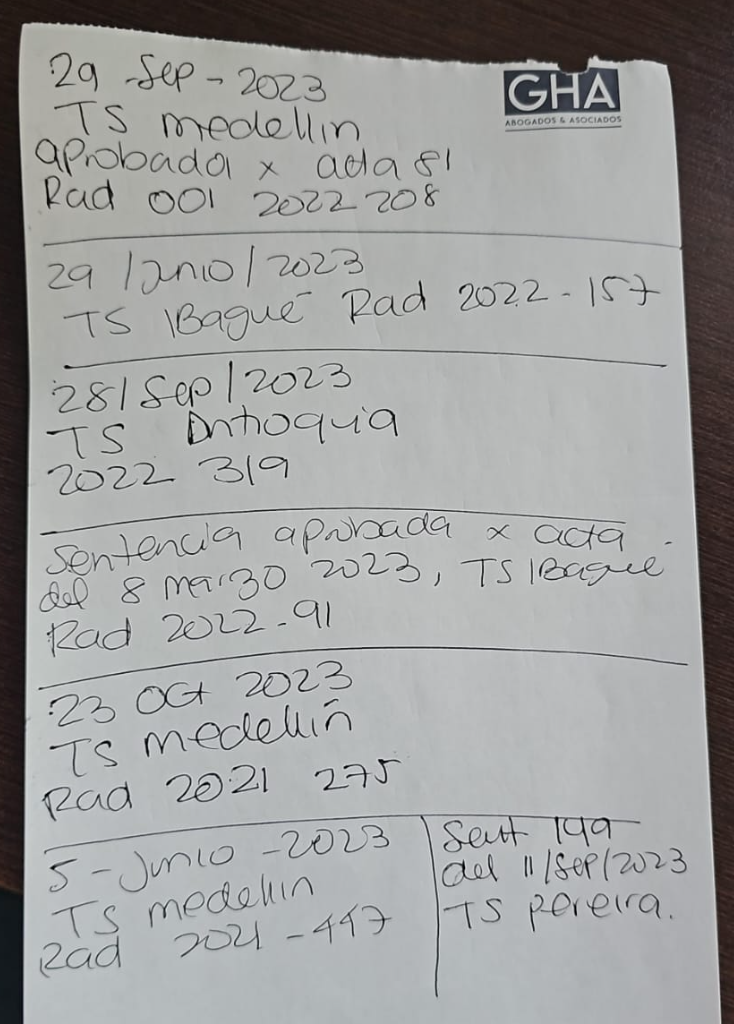 29 - Sep - 2023
GHA
ABOGADOS & ASOCIADOS
TS medellin
aprobada x acta 81
Rad 001 2022 208
29 / Junio / 2023
TS IBagué Rad 2022 - 157
28 / Sep / 2023
TS Antioquia
2022 319
Sentencia aprobada x acta
del 8 marzo 2023, TS IBague
Rad 2022 - 91
23 Oct 2023
TS medellin
Rad 2021 275
5 - Junio - 2023
TS medellin
Rad 2021 - 447
Sent 149
del 11/Sep/2023
TS pereira.